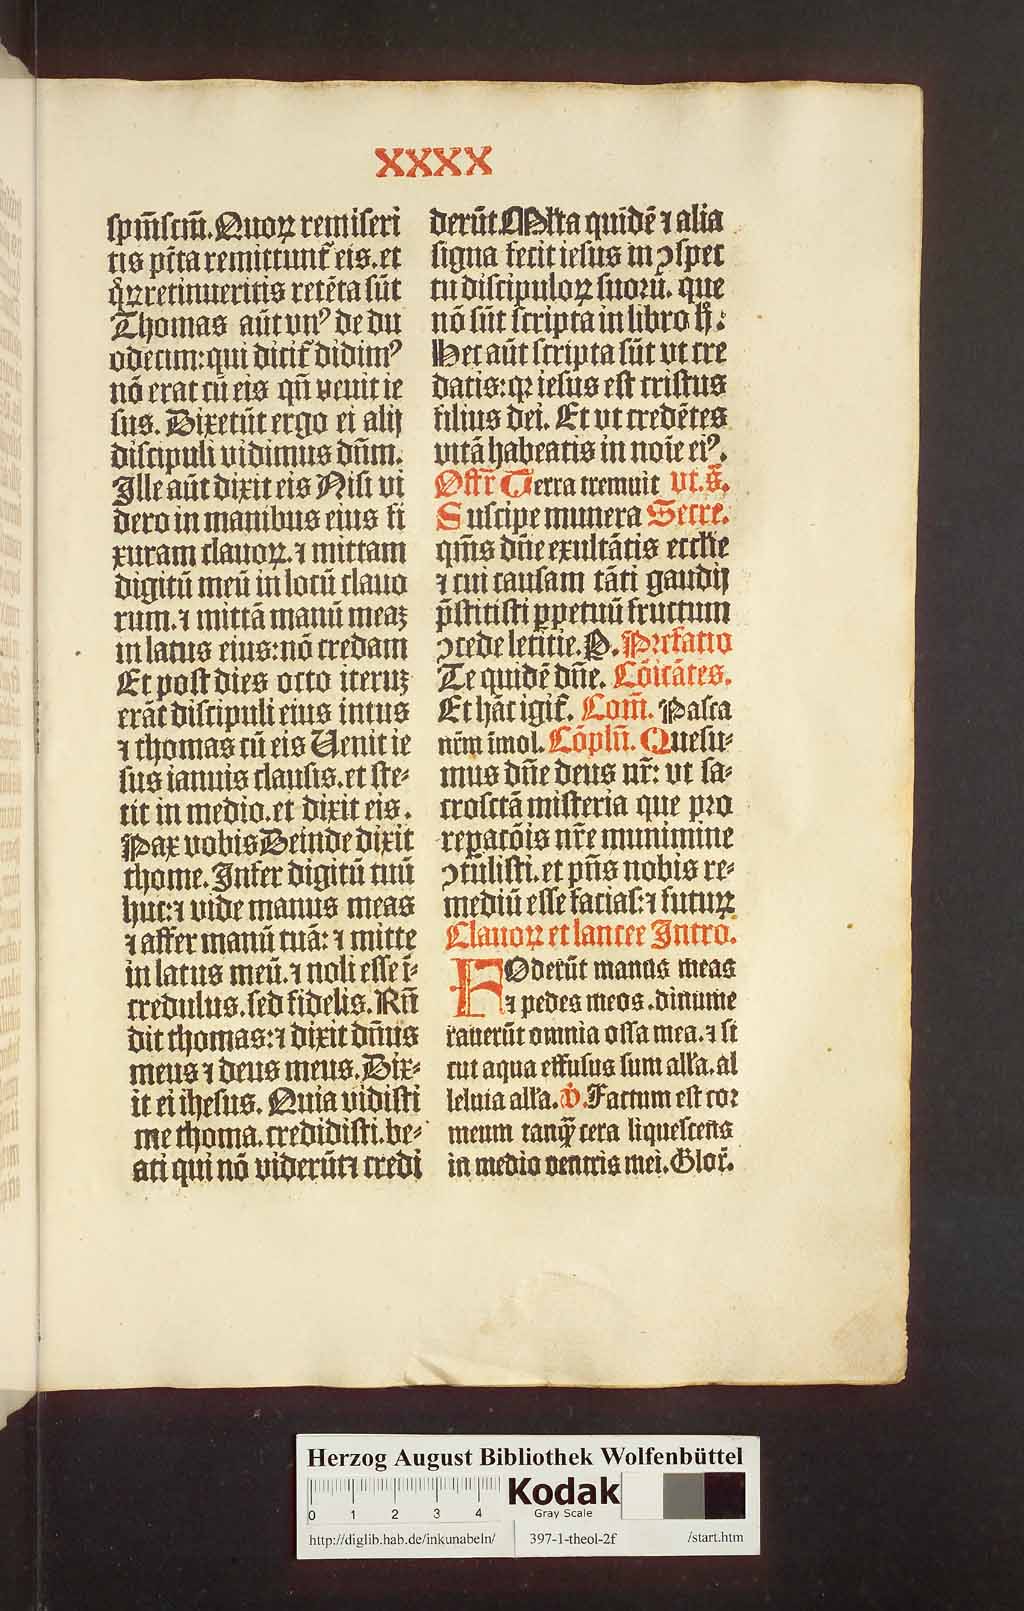 XXXX
spm̄scm̄. Quoꝝ remiseri
tis pctā remittunt᷑ eis. et
qͦꝝ retinueritis retēta sūt
Thomas aūt unꝰ de du
odecim: qui dicit᷑ didimꝰ
nō erat cū eis qn̄ venit ie
sus. Dixerūt ergo ei alij
discipuli vidimus dn̄m.
Ille aūt dixit eis Nisi vi
dero in manibus eius fi
xuram clauoꝝ. ⁊ mittam
digitū meū in locū clauo
rum. ⁊ mittā manū meaꝫ
in latus eius: nō credam
Et post dies octo iteruꝫ
erāt discipuli eius intus
⁊ thomas cū eis Uenit ie
sus ianuis clausis. et ste⸗
tit in medio. et dixit eis.
Pax vobis Deinde dixit
thome. Infer digitū tuū
huc: ⁊ vide manus meas
⁊ affer manū tuā: ⁊ mitte
in latus meū. ⁊ noli esse ī⸗
credulus. sed fidelis. Rn̄
dit thomas: ⁊ dixit dn̄us
meus ⁊ deus meus. Dix⸗
it ei ihesus. Quia vidisti
me thoma. credidisti. be⸗
ati qui nō viderūt ⁊ credi
derūt. Ml̄ta quidē ⁊ alia
signa fecit iesus in ꝯspec
tu discipuloꝝ suorū. que
nō sūt scripta in libro ħ:
Hec aūt scripta sūt vt cre
datis: qꝛ iesus est cristus
filius dei. Et vt credētes
vitā habeatis in noīe eiꝰ.
Offr̄ Terra tremuit vt. s̄.
Suscipe munera Secre.
qm̄s dn̄e exultātis eccl̄ie
⁊ cui causam tāti gaudij
p̄stitisti ꝑpetuū fructum
ꝯcede letitie. P. Prefatio
Te quidē dn̄e. Cōicātes.
Et hāc igit᷑. Com̄. Pasca
nr̄m īmol. Cōpln̄. Quesu⸗
mus dn̄e deus nr̄: vt sa⸗
crosctā misteria que pro
reꝑatōis nr̄e munimine
ꝯtulisti. et pn̄s nobis re⸗
mediū esse facias: ⁊ futuꝝ
Clauoꝝ et lancee Intro.
FOderūt manus meas
⁊ pedes meos. dinume
rauerūt omnia ossa mea. ⁊ si
cut aqua effusus sum all'a. al
leluia all'a. v̇. Factum est cor
meum tanqͣꝫ cera liquescens
in medio ventris mei. Glor̄.
Herzog August Bibliothek Wolfenbüttel
0 1 2 3 4
Kodak
Gray Scale
http://diglib.hab.de/inkunabeln/ 397-1-theol-2f /start.htm